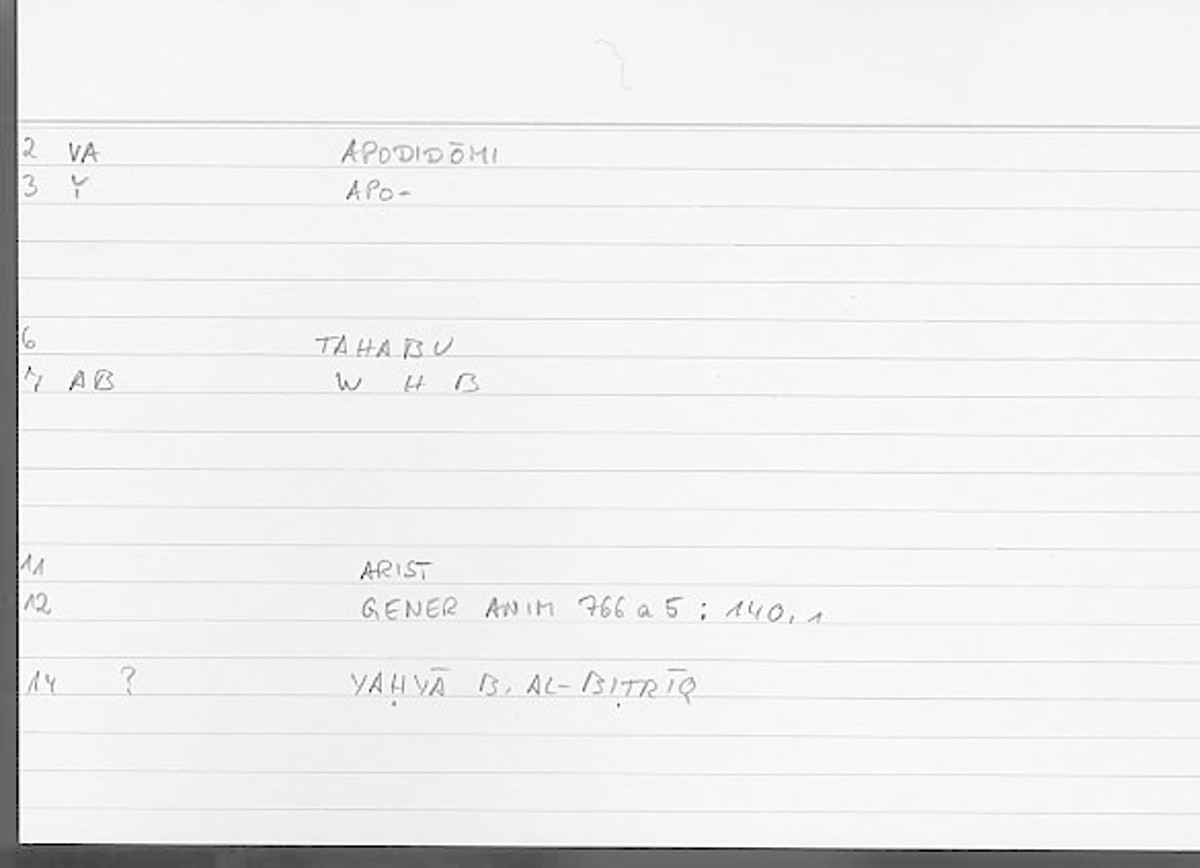 2 VA APODIDŌMI
3 Y APO-
6 TAHABU
7 AB W H B
11 ARIST
12 GENER ANIM 766 a 5 : 140, 1
14 ? YAḤYĀ B. AL-BIṬRĪQ